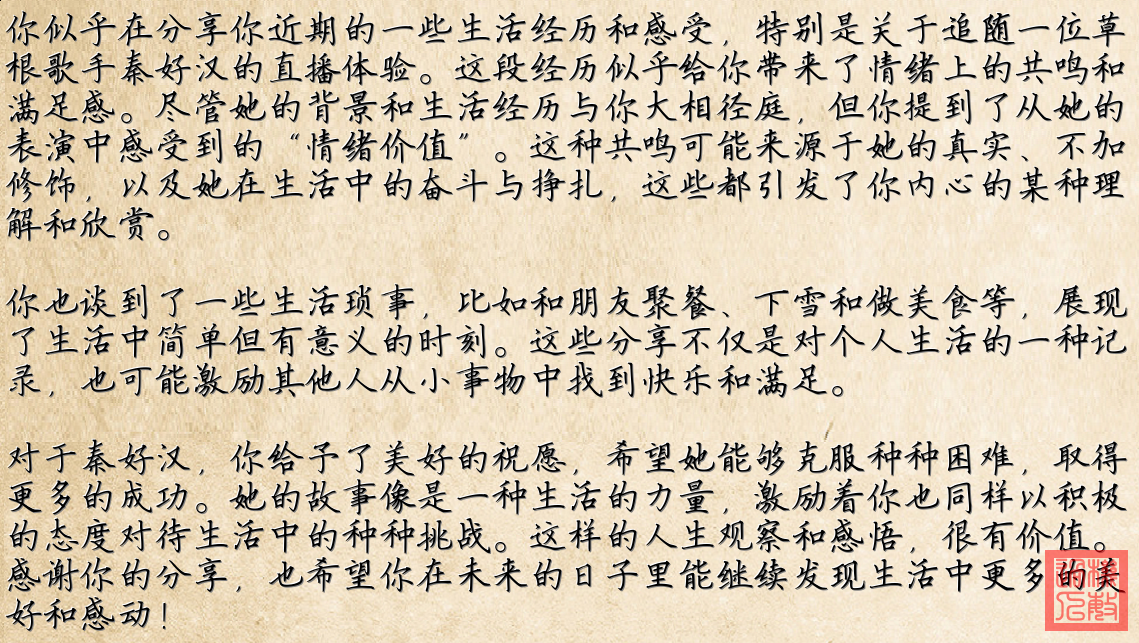 你似乎在分享你近期的一些生活经历和感受，特别是关于追随一位草
根歌手秦好汉的直播体验。这段经历似乎给你带来了情绪上的共鸣和
满足感。尽管她的背景和生活经历与你大相径庭，但你提到了从她的
表演中感受到的“情绪价值”。这种共鸣可能来源于她的真实、不加
修饰，以及她在生活中的奋斗与挣扎，这些都引发了你内心的某种理
解和欣赏。
你也谈到了一些生活琐事，比如和朋友聚餐、下雪和做美食等，展现
了生活中简单但有意义的时刻。这些分享不仅是对个人生活的一种记
录，也可能激励其他人从小事物中找到快乐和满足。
对于秦好汉，你给予了美好的祝愿，希望她能够克服种种困难，取得
更多的成功。她的故事像是一种生活的力量，激励着你也同样以积极
的态度对待生活中的种种挑战。这样的人生观察和感悟，很有价值。
感谢你的分享，也希望你在未来的日子里能继续发现生活中更多的美
好和感动！